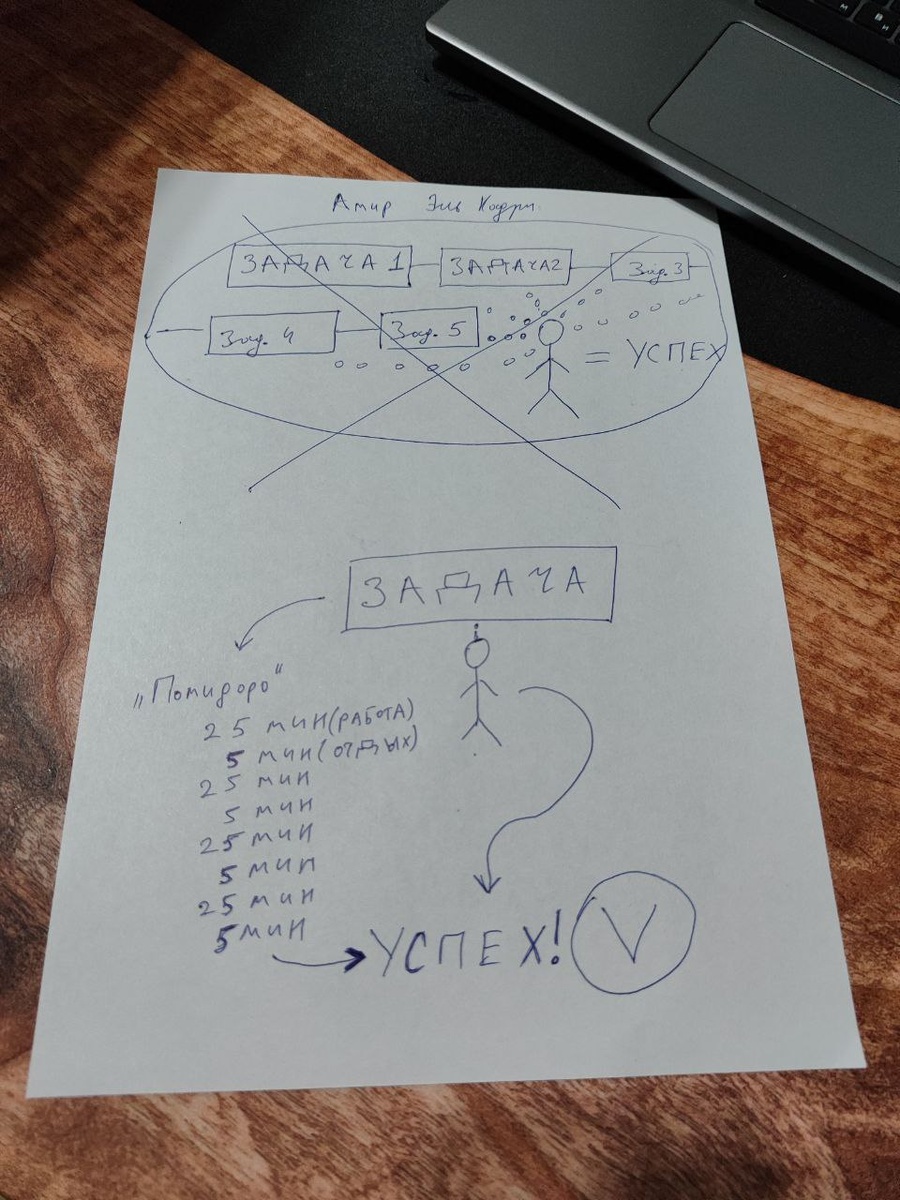 Амир Эль Кадри
ЗАДАЧА 1 ЗАДАЧА2 Зад. 3
Зад. 4 Зад. 5 = УСПЕХ
ЗАДАЧА
„Помидоро“
25 мин(РАБОТА)
5 мин(ОТДЫХ)
25 мин
5 мин
25 мин
5 мин
25 мин
5 мин
УСПЕХ! V